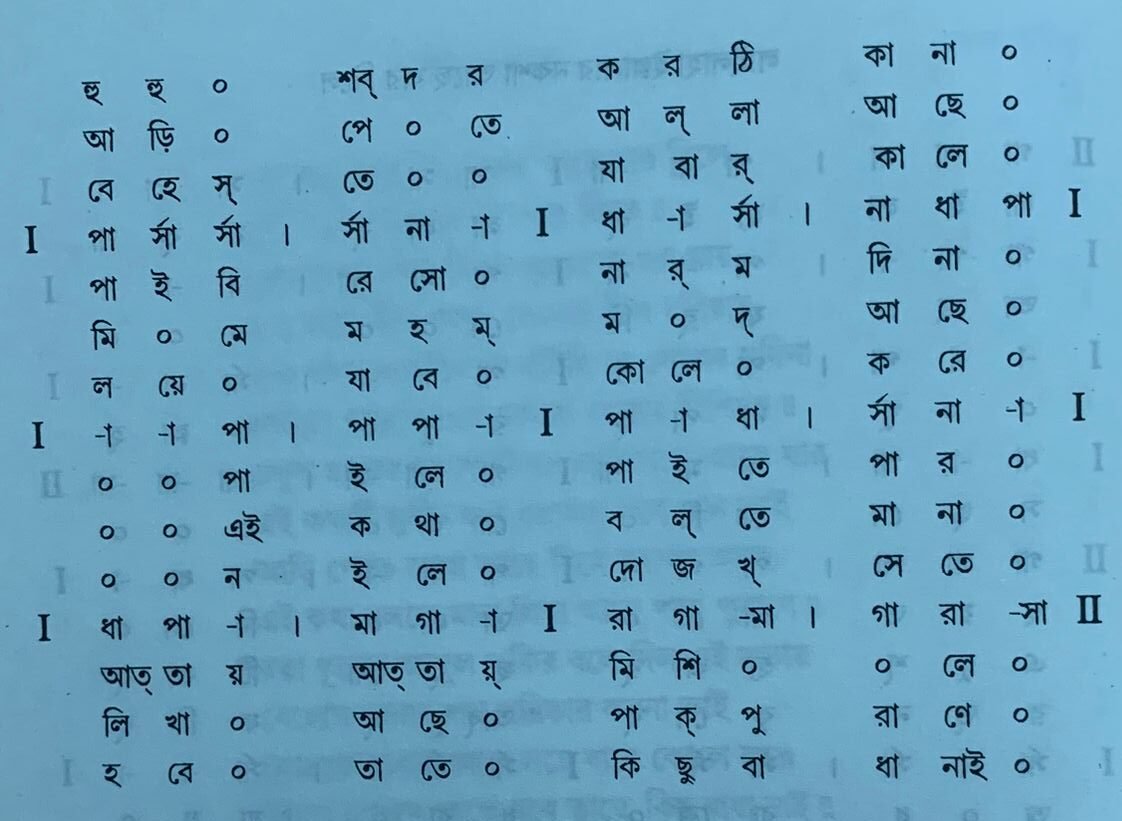 হু হু ০ শব্ দ র ক র ঠি কা না ০
আ ড়ি ০ পে ০ তে আ ল্ লা আ ছে ০
বে হে স্ তে ০ ০ যা বা র্ কা লে ০
I পা র্সা র্সা । র্সা না -া I ধা -া র্সা । না ধা পা I
পা ই বি রে সো ০ না র্ ম দি না ০
মি ০ মে ম হ ম্ ম ০ দ্ আ ছে ০
ল য়ে ০ যা বে ০ কো লে ০ ক রে ০
I -া -া পা । পা পা -া I পা -া ধা । র্সা না -া I
০ ০ পা ই লে ০ পা ই তে পা র ০
০ ০ এই ক থা ০ ব ল্ তে মা না ০
০ ০ ন ই লে ০ দো জ খ্ সে তে ০
I ধা পা -া । মা গা -া I রা গা -মা । গা রা -সা II
আত্ তা য় আত্ তা য়্ মি শি ০ ০ লে ০
লি খা ০ আ ছে ০ পা ক্ পু রা ণে ০
হ বে ০ তা তে ০ কি ছু বা ধা নাই ০